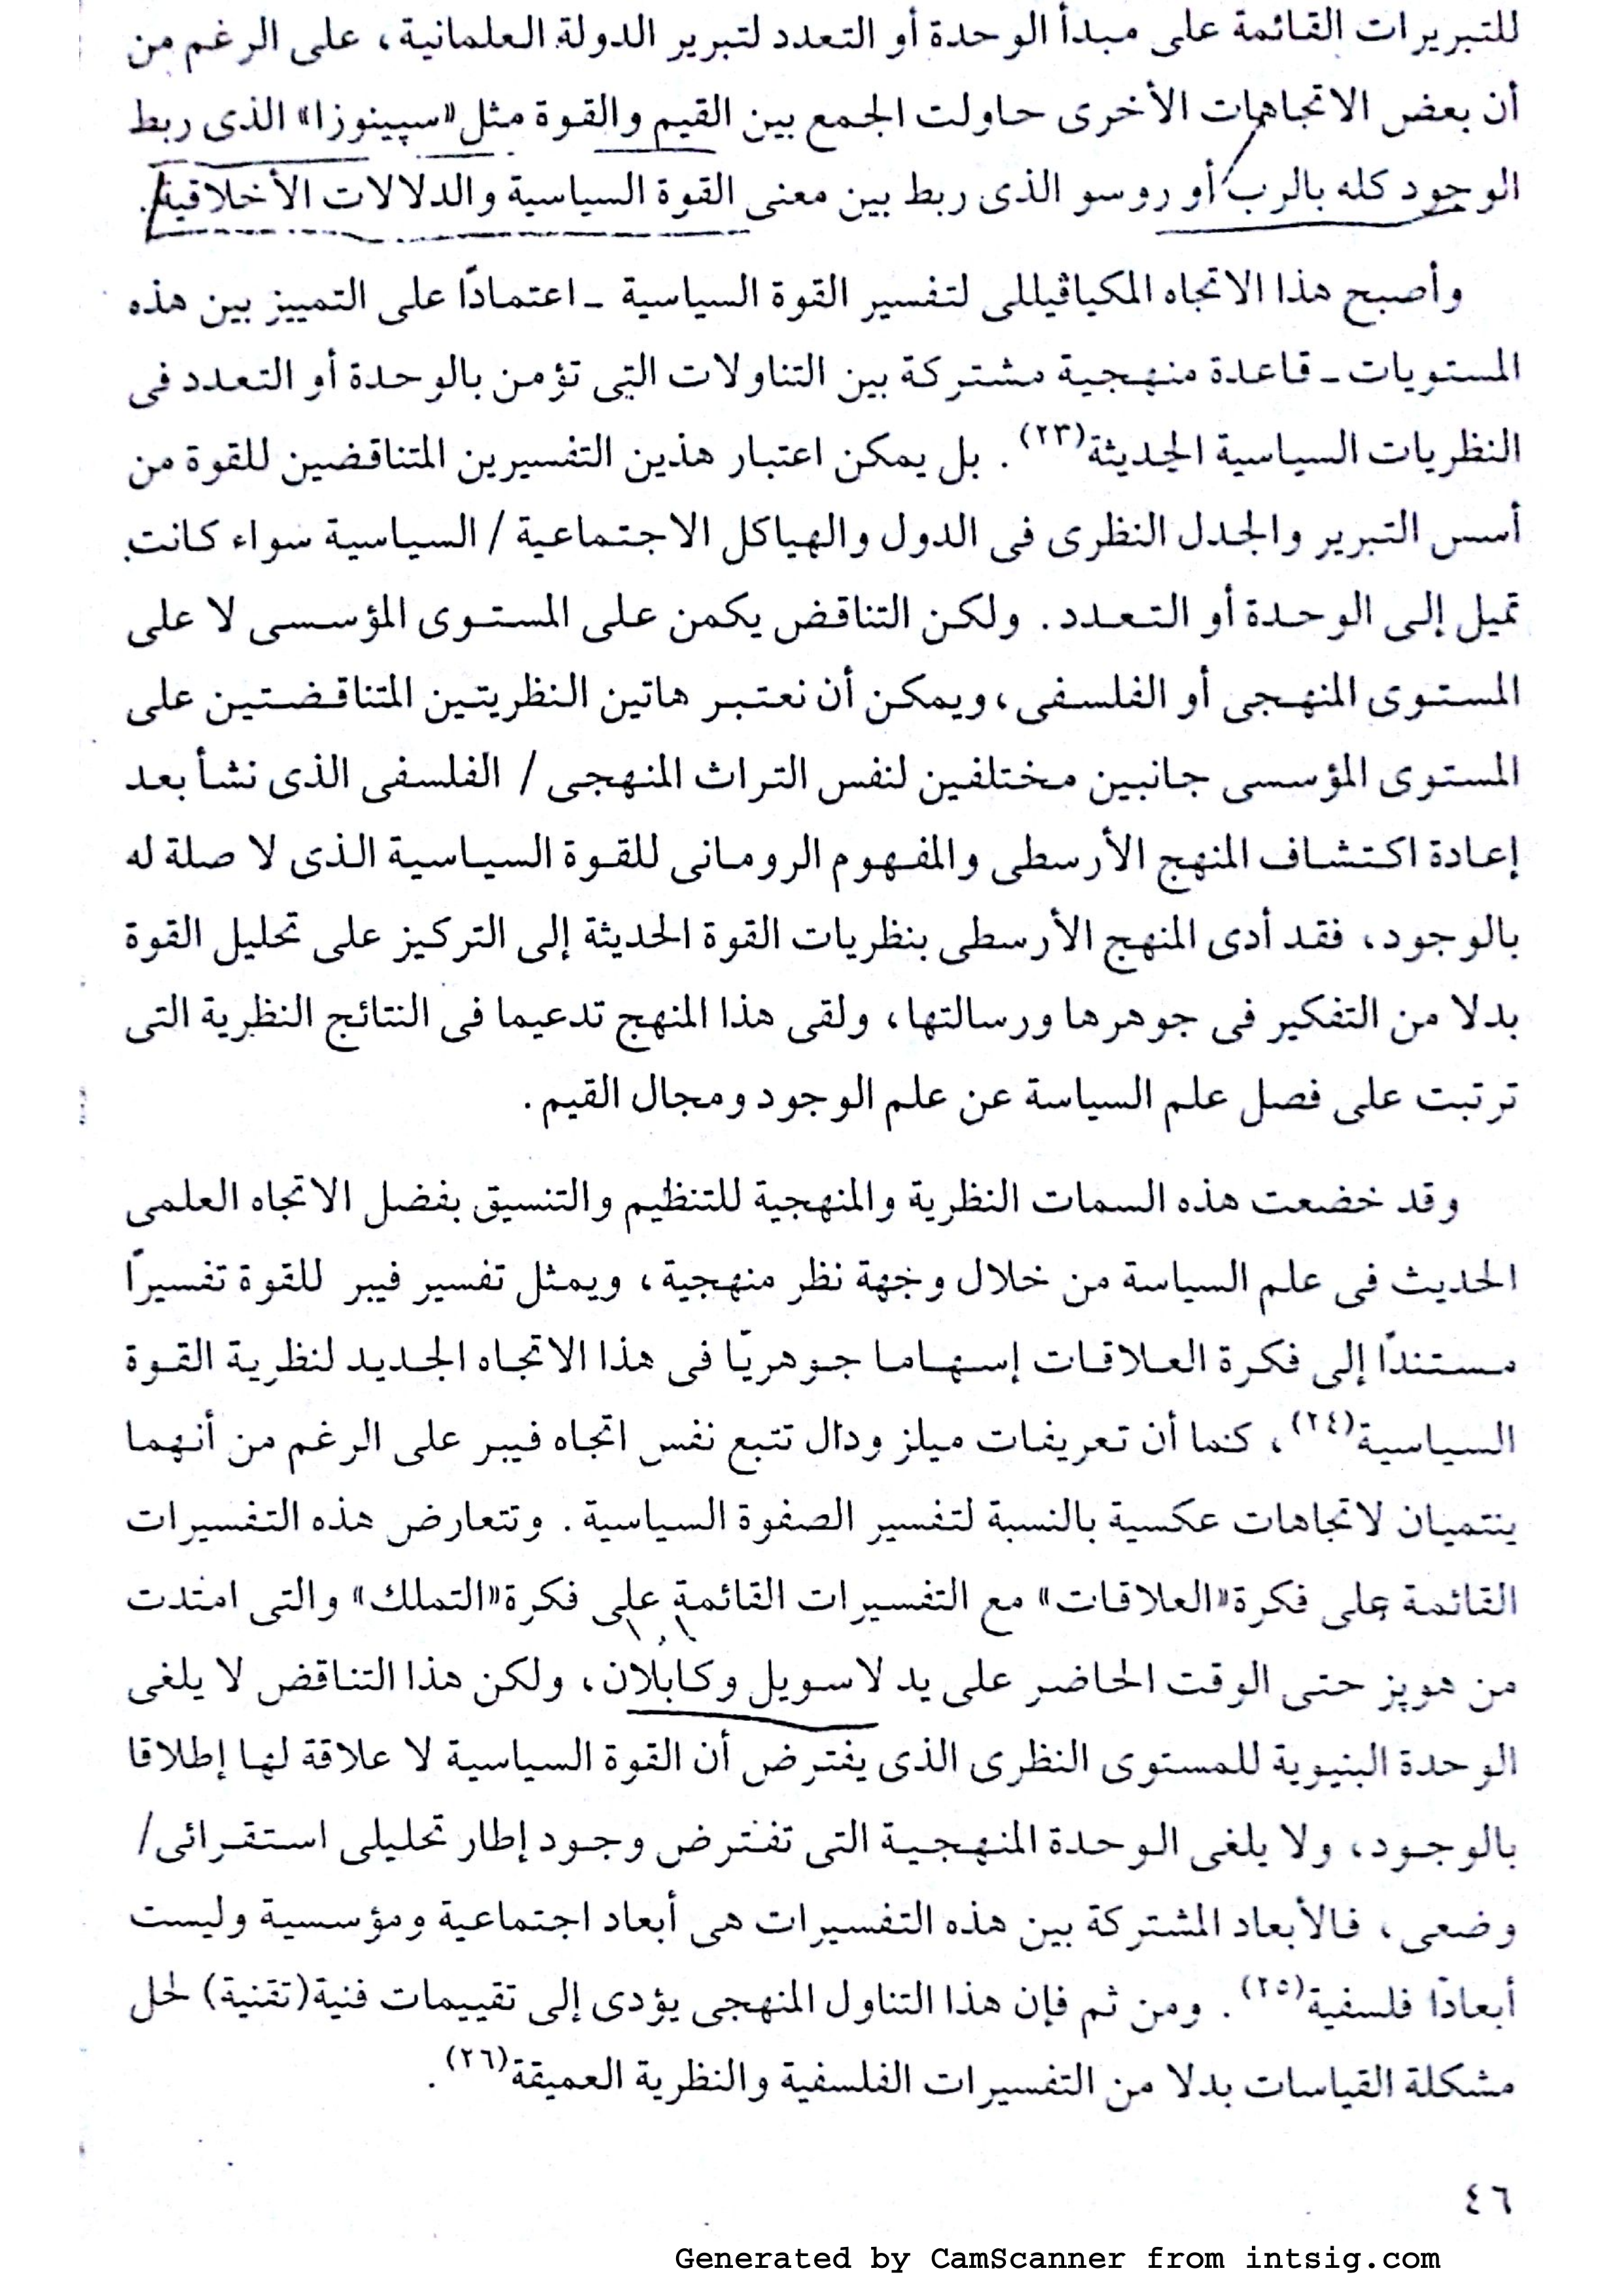 للتبريرات القائمة على مبدأ الوحدة أو التعدد لتبرير الدولة العلمانية، على الرغم من
أن بعض الاتجاهات الأخرى حاولت الجمع بين القيم والقوة مثل «سپينوزا» الذى ربط
الوجود كله بالرب أو روسو الذى ربط بين معنى القوة السياسية والدلالات الأخلاقية.
وأصبح هذا الاتجاه المكياڤيللى لتفسير القوة السياسية ـ اعتمادًا على التمييز بين هذه
المستويات ـ قاعدة منهجية مشتركة بين التناولات التى تؤمن بالوحدة أو التعدد فى
النظريات السياسية الحديثة(٢٣). بل يمكن اعتبار هذين التفسيرين المتناقضين للقوة من
أسس التبرير والجدل النظرى فى الدول والهياكل الاجتماعية / السياسية سواء كانت
تميل إلى الوحدة أو التعدد. ولكن التناقض يكمن على المستوى المؤسسى لا على
المستوى المنهجى أو الفلسفى، ويمكن أن نعتبر هاتين النظريتين المتناقضتين على
المستوى المؤسسى جانبين مختلفين لنفس التراث المنهجى / الفلسفى الذى نشأ بعد
إعادة اكتشاف المنهج الأرسطى والمفهوم الرومانى للقوة السياسية الذى لا صلة له
بالوجود، فقد أدى المنهج الأرسطى بنظريات القوة الحديثة إلى التركيز على تحليل القوة
بدلا من التفكير فى جوهرها ورسالتها، ولقى هذا المنهج تدعيما فى النتائج النظرية التى
ترتبت على فصل علم السياسة عن علم الوجود ومجال القيم.
وقد خضعت هذه السمات النظرية والمنهجية للتنظيم والتنسيق بفضل الاتجاه العلمى
الحديث فى علم السياسة من خلال وجهة نظر منهجية، ويمثل تفسير فيبر للقوة تفسيرًا
مستندًا إلى فكرة العلاقات إسهاما جوهريّا فى هذا الاتجاه الجديد لنظرية القوة
السياسية(٢٤)، كما أن تعريفات ميلز ودال تتبع نفس اتجاه فيبر على الرغم من أنهما
ينتميان لاتجاهات عكسية بالنسبة لتفسير الصفوة السياسية. وتتعارض هذه التفسيرات
القائمة على فكرة «العلاقات» مع التفسيرات القائمة على فكرة «التملك» والتى امتدت
من هوبز حتى الوقت الحاضر على يد لاسويل وكابلان، ولكن هذا التناقض لا يلغى
الوحدة البنيوية للمستوى النظرى الذى يفترض أن القوة السياسية لا علاقة لها إطلاقا
بالوجود، ولا يلغى الوحدة المنهجية التى تفترض وجود إطار تحليلى استقرائى/
وضعى، فالأبعاد المشتركة بين هذه التفسيرات هى أبعاد اجتماعية ومؤسسية وليست
أبعادًا فلسفية(٢٥). ومن ثم فإن هذا التناول المنهجى يؤدى إلى تقييمات فنية (تقنية) لحل
مشكلة القياسات بدلا من التفسيرات الفلسفية والنظرية العميقة(٢٦).
٤٦
Generated by CamScanner from intsig.com